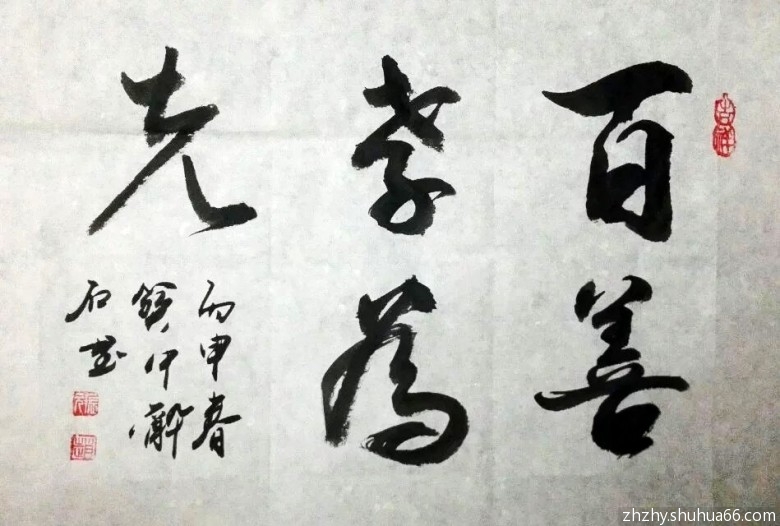 百善
孝為
先
丙申春
石
吉祥
zhzhy.shuhua66.com